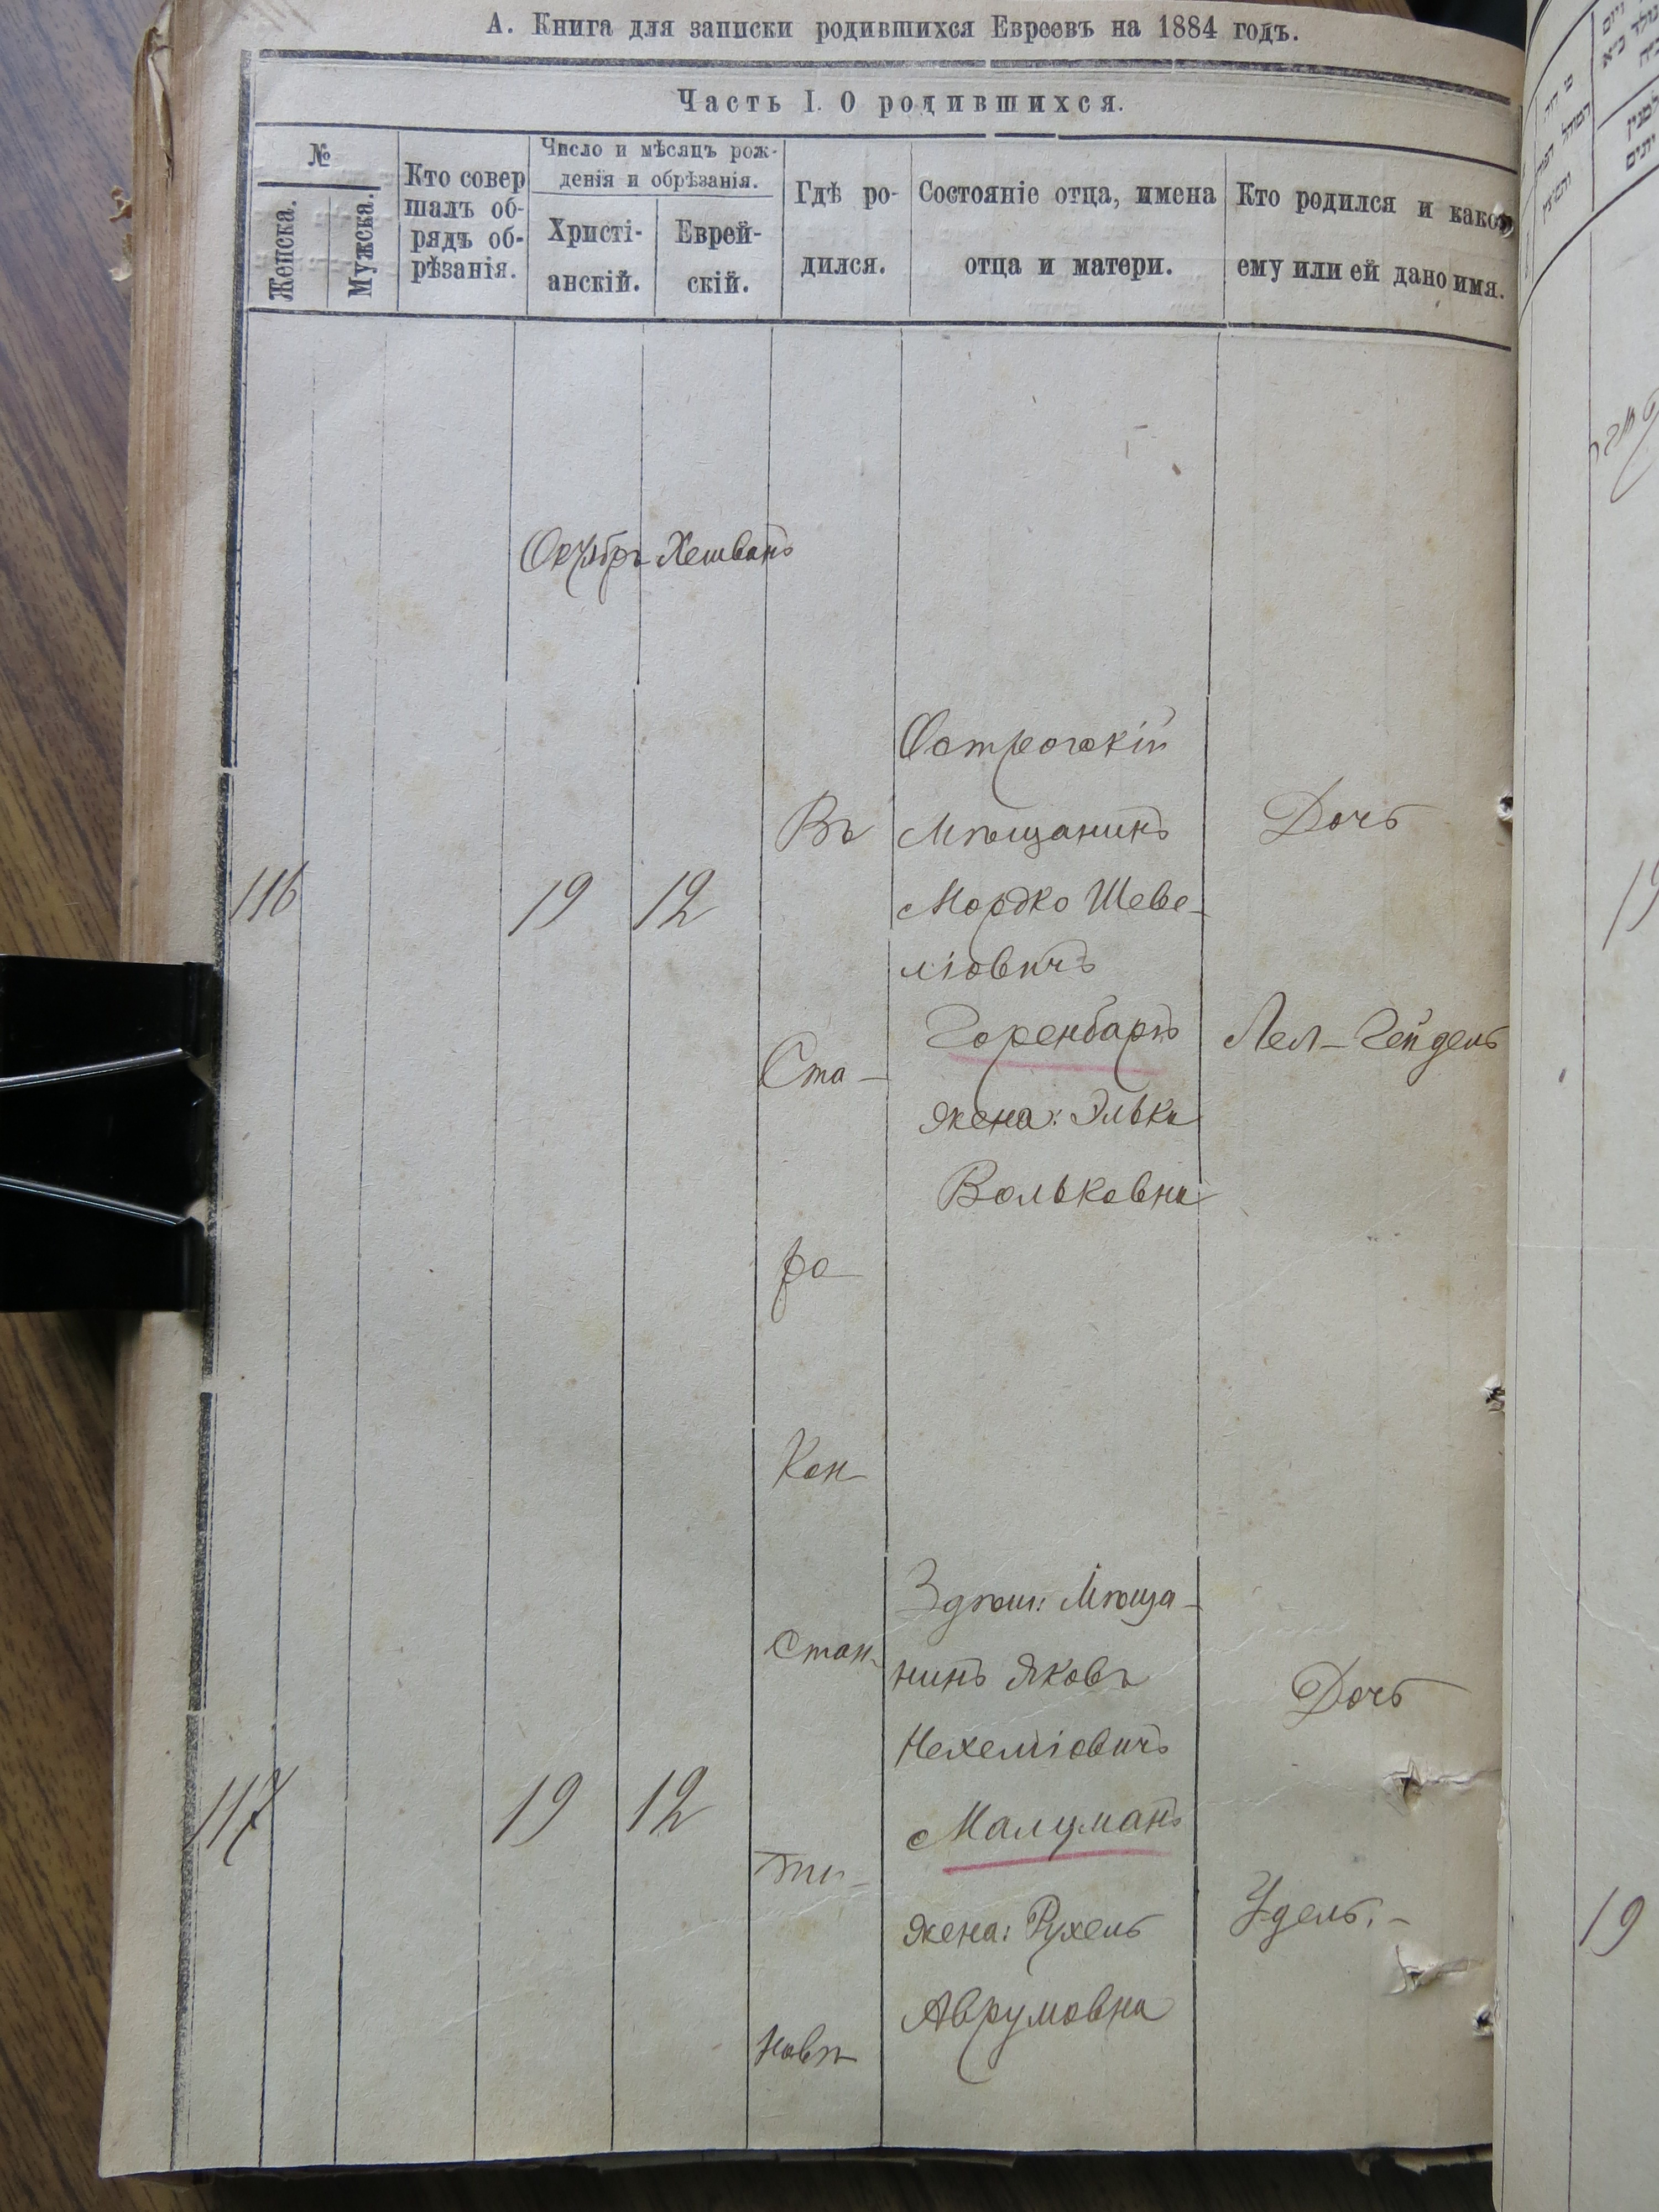 А. Книга для записки родившихся Евреевъ на 1884 годъ.
Часть I. О родившихся.
№
Женска.
Мужска.
Кто совер
шалъ об-
рядъ об-
рѣзанія.
Число и мѣсяцъ рож-
денія и обрѣзанія.
Христі-
анскій.
Еврей-
скій.
Гдѣ ро-
дился.
Состояніе отца, имена
отца и матери.
Кто родился и какое
ему или ей дано имя.
Октябрь Хешванъ
116
19
12
Въ
Ста-
ро
Кон
стан-
ти-
новѣ
Острогскій
Мѣщанинъ
Мордко Шеве-
ліовичъ
Горенбаръ
жена: Элька
Вольковна
Дочь
Лея-Гейдель
117
19
12
Здѣш: Мѣща-
нинъ Яковъ
Нехеміовичъ
Малцманъ
жена: Рухель
Аврумовна
Дочь
Удель.-
19
19